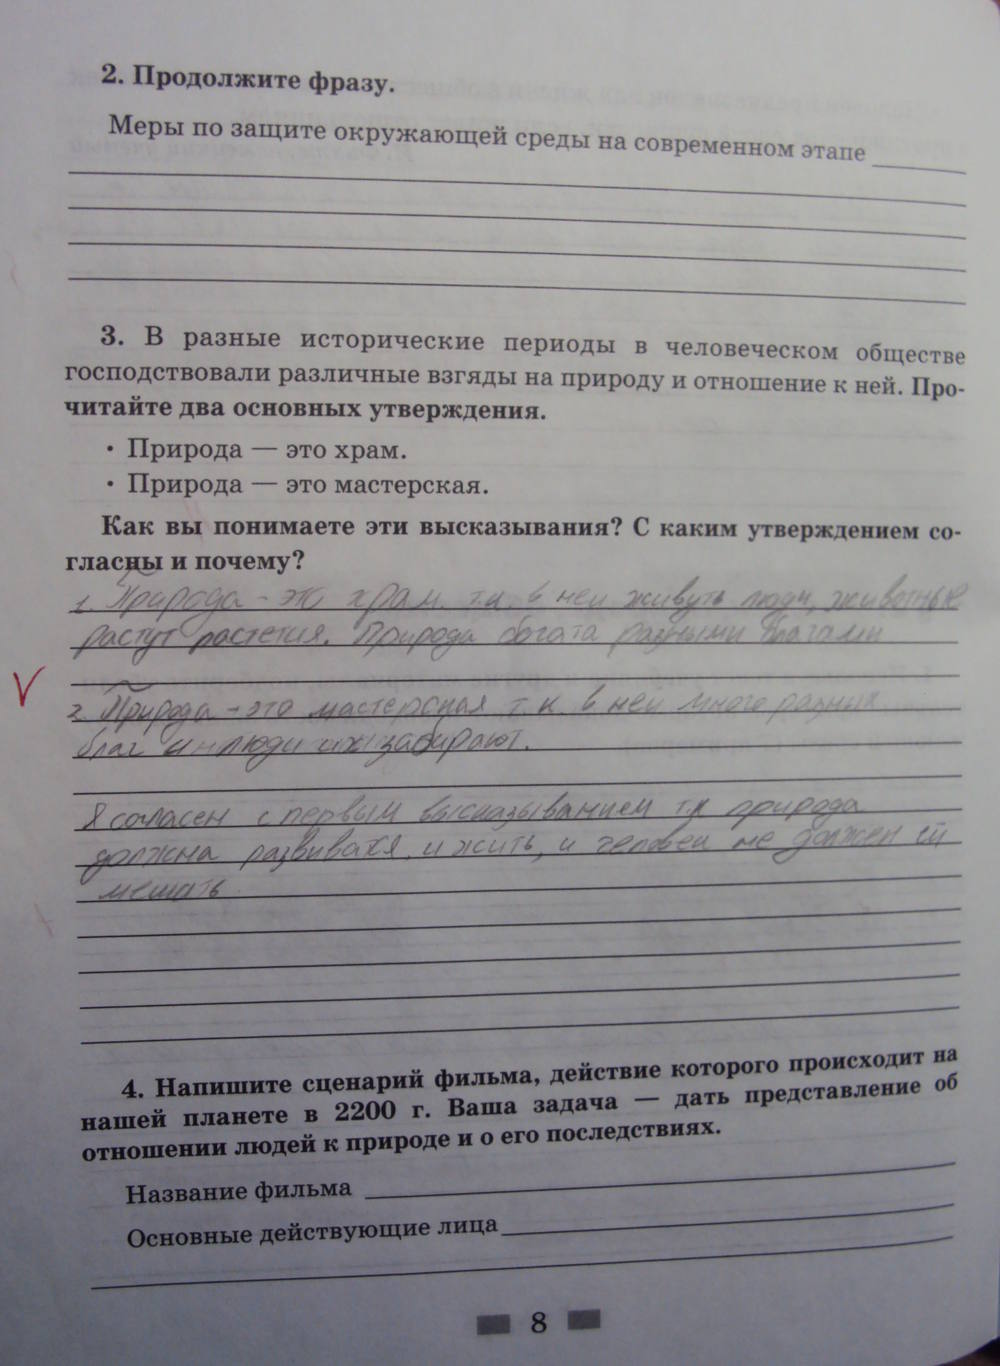 2. Продолжите фразу.
Меры по защите окружающей среды на современном этапе
3. В разные исторические периоды в человеческом обществе
господствовали различные взгяды на природу и отношение к ней. Про-
читайте два основных утверждения.
• Природа — это храм.
• Природа — это мастерская.
Как вы понимаете эти высказывания? С каким утверждением со-
гласны и почему?
1. Природа - это храм т.к. в ней живуть люди, животные
растут растения. Природа богата разными благами
2. Природа - это мастерская т.к. в ней много разных
благ и люди их забирают.
Я согласен с первым высказыванием т.к природа
должна развиватя и жить, и человек не должен ей
мешать
4. Напишите сценарий фильма, действие которого происходит на
нашей планете в 2200 г. Ваша задача — дать представление об
отношении людей к природе и о его последствиях.
Название фильма
Основные действующие лица
8